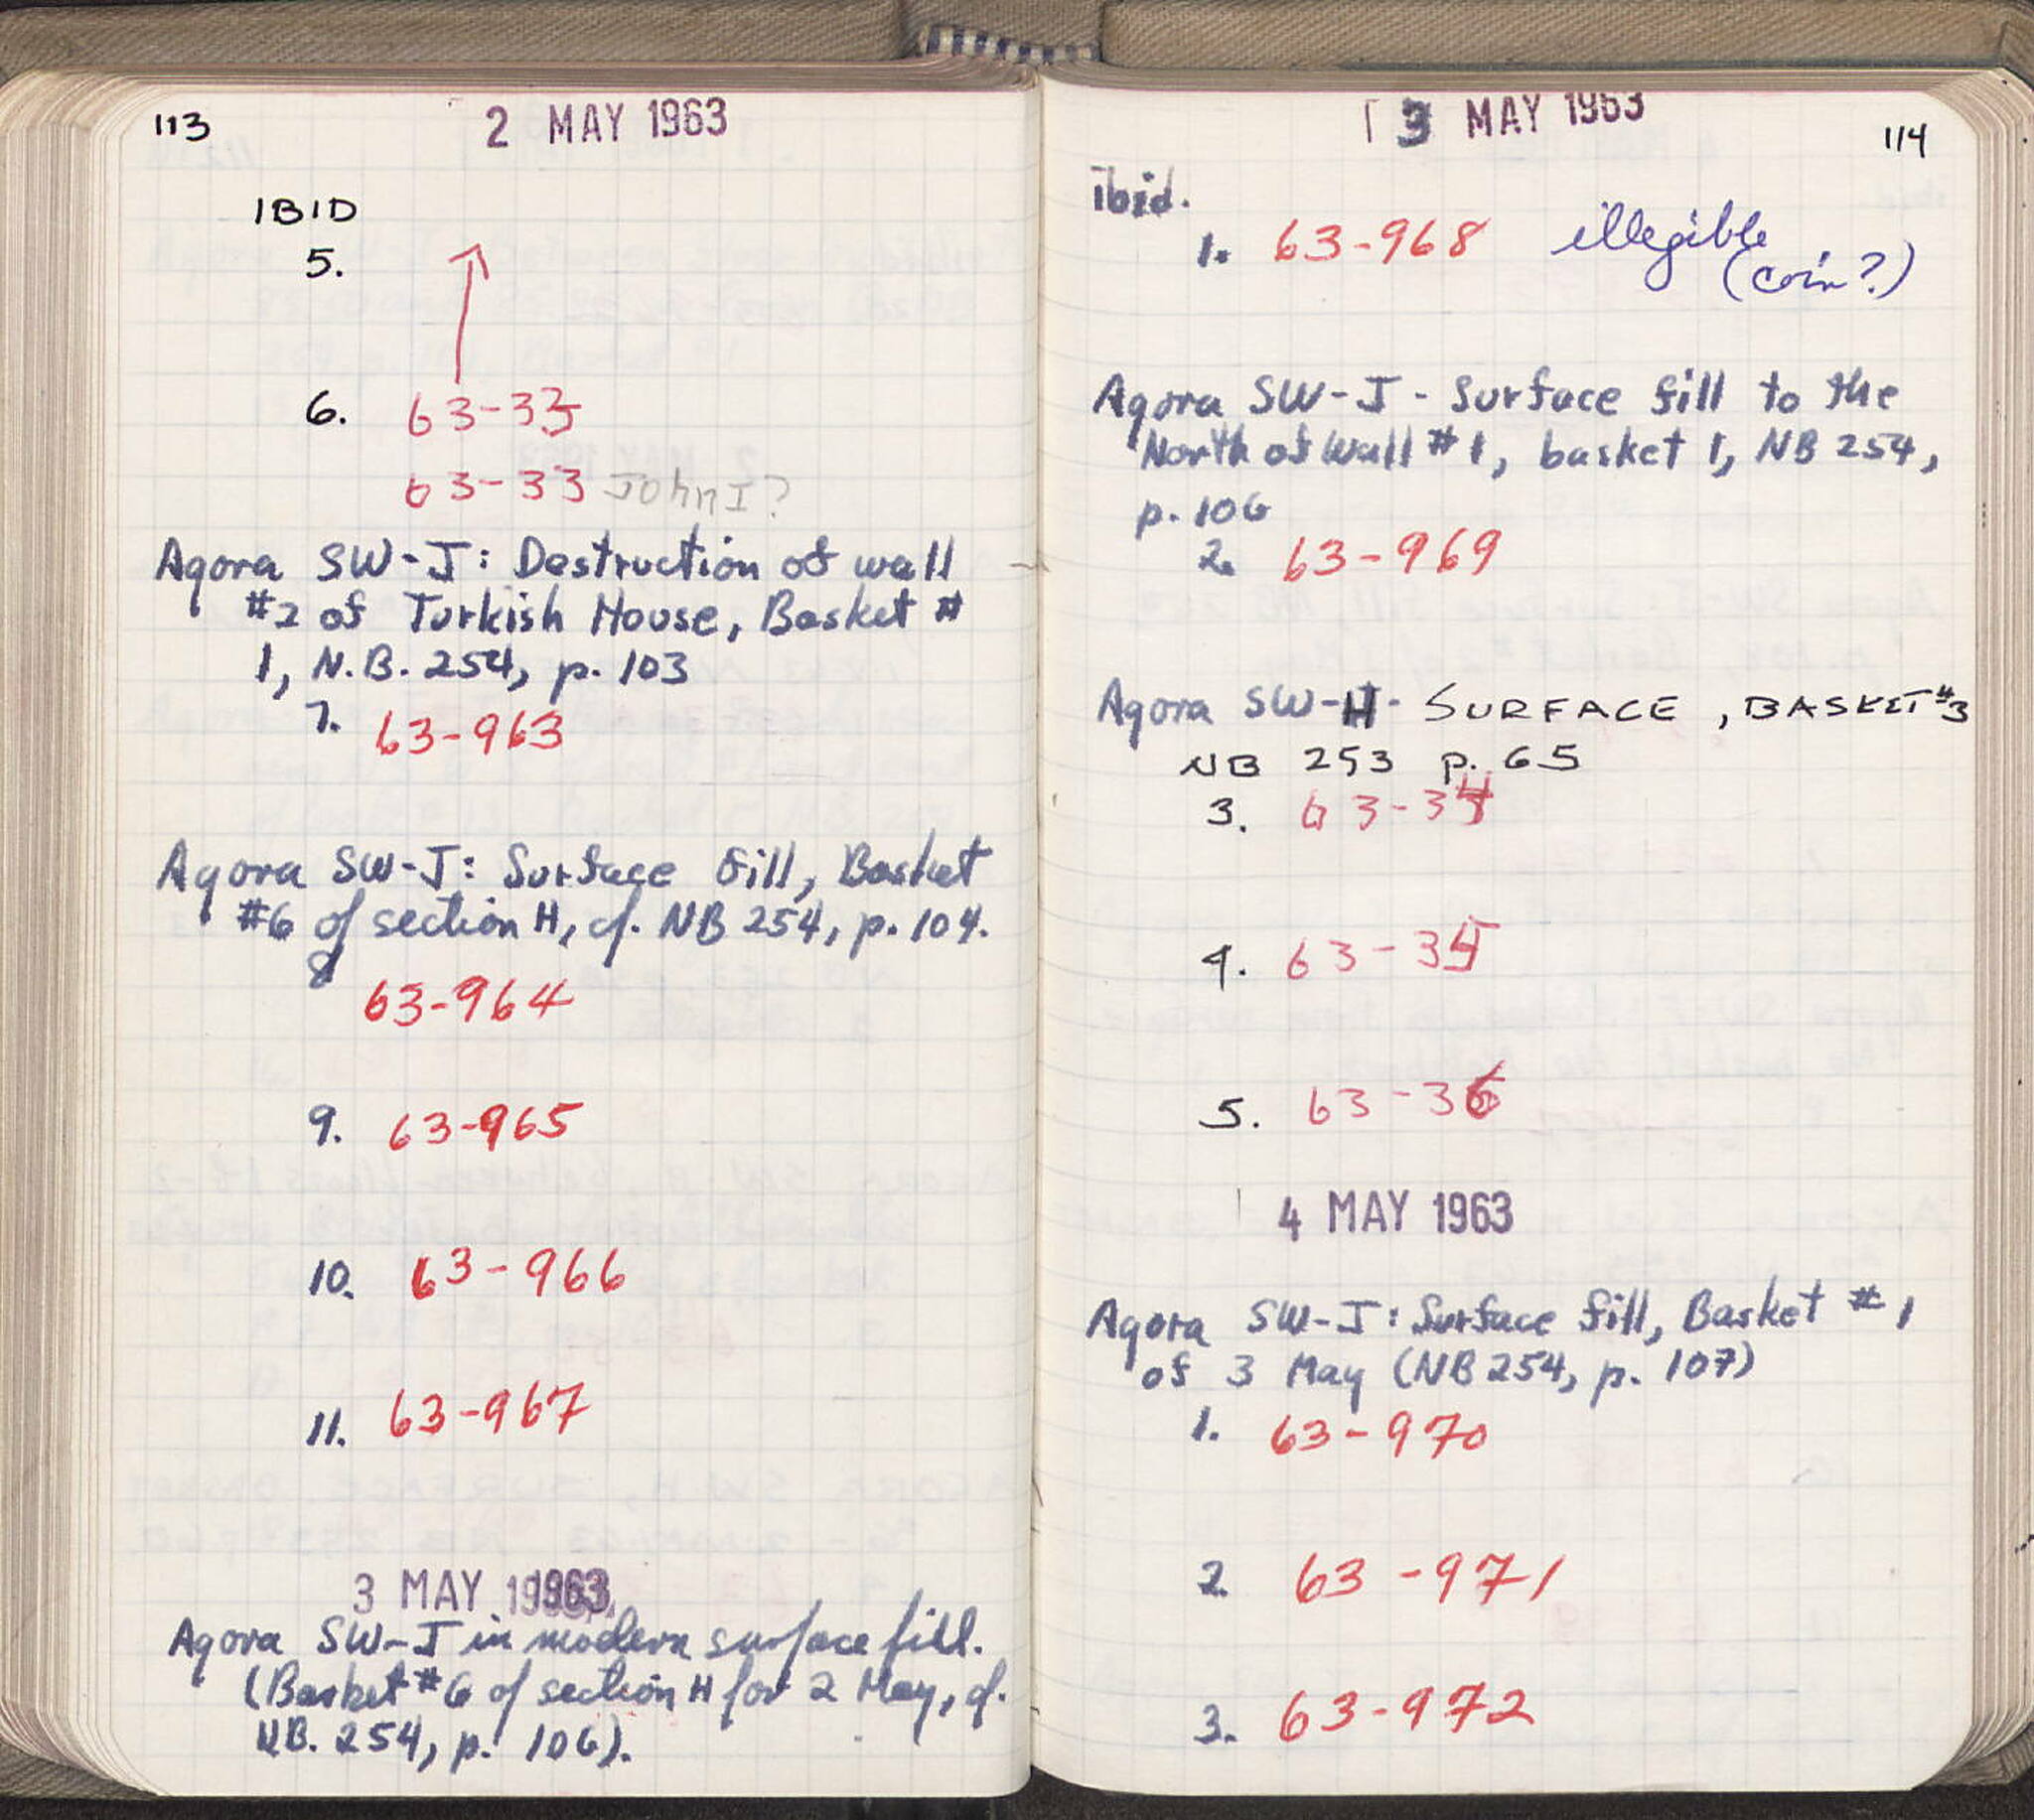 113
2 MAY 1963
IBID
5.
6. 63-33
63-33 John I?
Agora SW-J: Destruction of wall
#2 of Turkish House, Basket #
1, N.B. 254, p. 103
7. 63-963
Agora SW-J: Surface fill, Basket
#6 of section H, cf. NB 254, p. 104.
8
63-964
9. 63-965
10. 63-966
11. 63-967
3 MAY 1963
Agora SW-J in modern surface fill.
(Basket #6 of section H for 2 May, cf.
NB. 254, p. 106).
3 MAY 1963
114
ibid.
1. 63-968 illegible
(coin?)
Agora SW-J - Surface fill to the
North of Wall #1, basket 1, NB 254,
p. 106
2. 63-969
Agora SW-H- SURFACE, BASKET #3
NB 253 p. 65
3. 63-34
4. 63-35
5. 63-36
4 MAY 1963
Agora SW-J: Surface fill, Basket #1
of 3 May (NB 254, p. 107)
1. 63-970
2. 63-971
3. 63-972